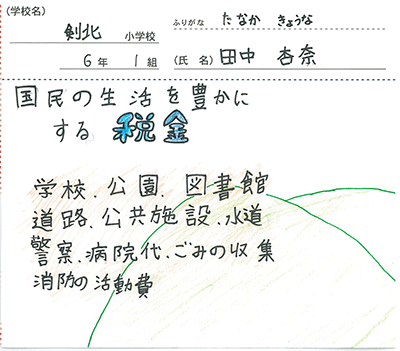 (学校名)
剣北 小学校
6年 1組
ふりがな たなか きょうな
(氏名) 田中 杏奈
国民の生活を豊かに
する 税金
学校、公園、図書館
道路、公共施設、水道
警察、病院代、ごみの収集
消防の活動費